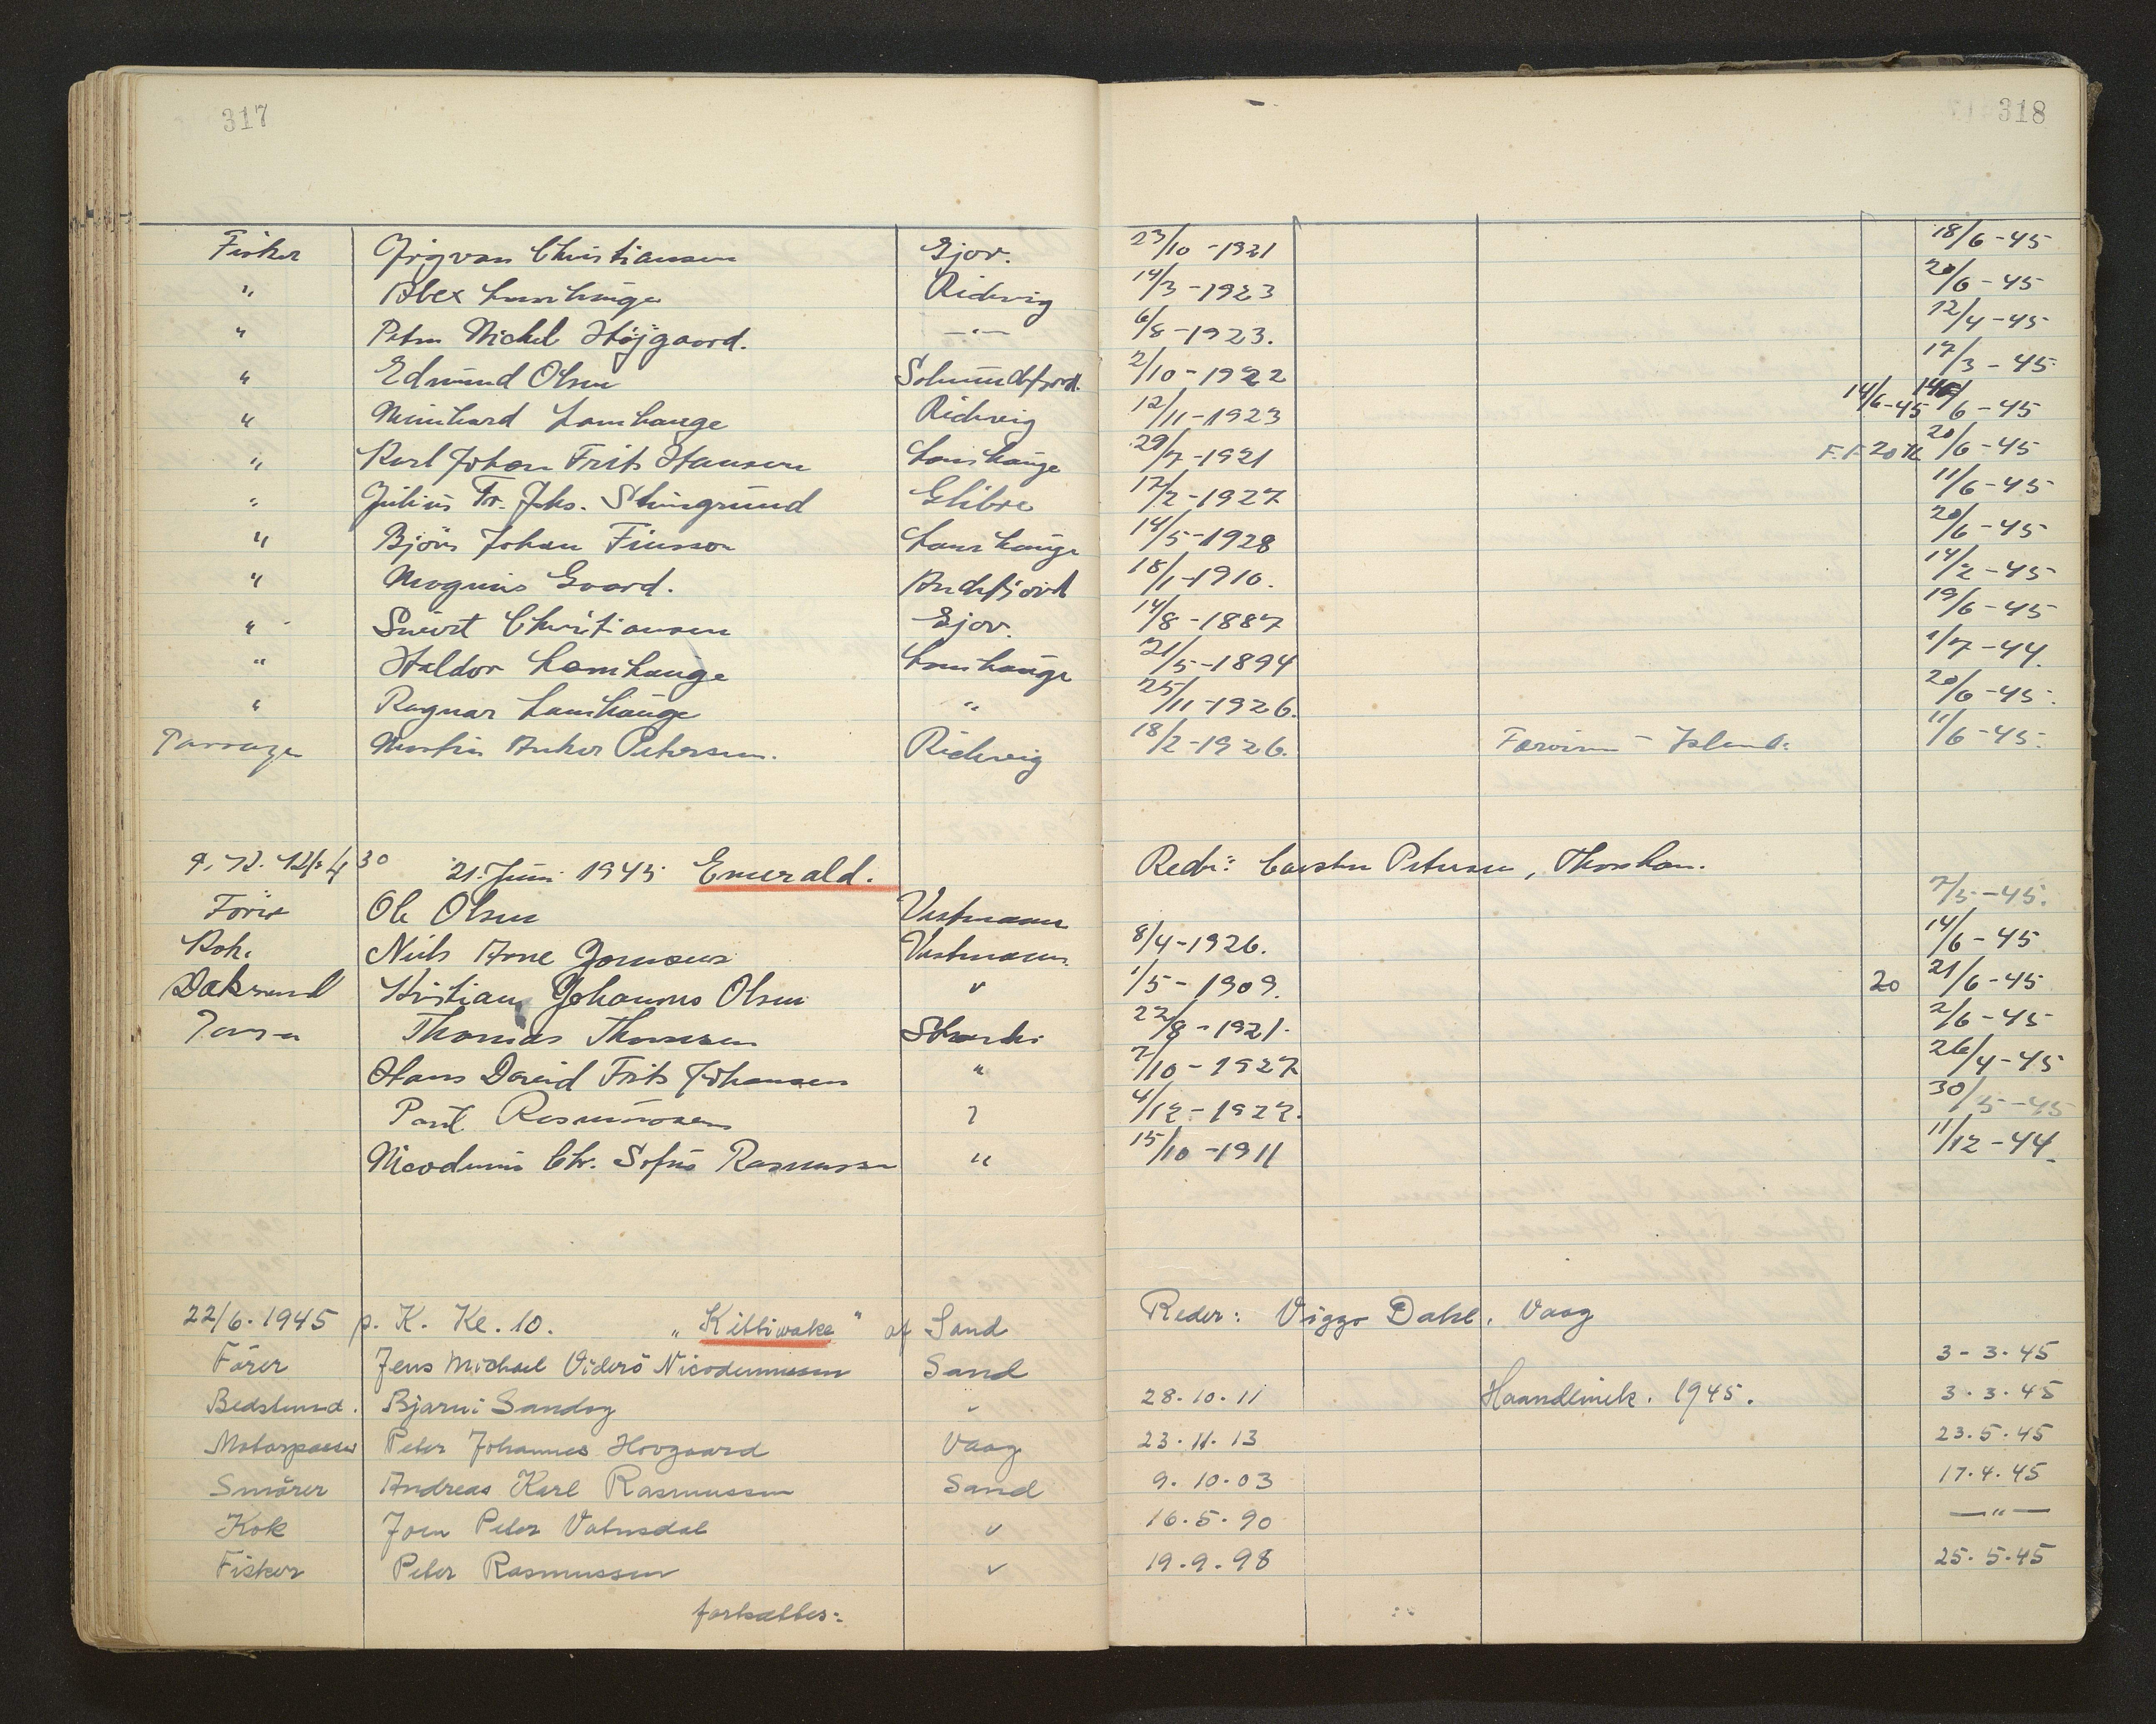 317
318
Fisker Trygvan Christiansen Ejov. 23/10-1921 18/6-45
" Alex Lamhauge Ridevig 14/3-1923 20/6-45
" Peter Michel Höjgaard. —"— 6/8-1923. 12/4-45
" Edmund Olsen Solmundefjord. 2/10-1922 17/3-45
" Meinhard Lamhauge Ridevig 12/11-1923 14/6-45 6-45
" Karl Johan Frits Hansen Lamhauge 29/7-1921 F.F. 20 20/6-45
" Julius Fr. Jks. Steingrund Glibre 17/2-1927 11/6-45
" Björn Johan Finsson Lamhauge 14/5-1928 20/6-45
" Mognus Goard. Andefjord 18/1-1910. 14/2-45
" Sivert Christiansen Ejov. 14/8-1887 19/6-45
" Haldor Lamhauge Lamhauge 21/5-1894 1/7-44.
" Ragnar Lamhauge " 25/11-1926. 20/6-45.
Passager Martin Anker Petersen. Ridevig 18/2-1926. Færöerne - Island. 11/6-45.
21. Juni 1945 Emerald. Reder: Carsten Petersen, Thorshavn.
Förer Ole Olsen Vestmanna 7/5-45.
Kok. Niels Arne Joensen Vestmanna. 8/4-1926. 14/6-45
Daksmand Kristian Johannes Olsen " 1/5-1909. 20 21/6-45
Thomas Thomsen 22/8-1921. 2/6-45
Hans David Frits Johansen " 7/10-1927 26/4-45
Poul Rasmussen 4/12-1922. 30/5-45
Nicodemus Chr. Sofus Rasmussen " 15/10-1911 11/12-44.
22/6.1945 p. K. Ke. 10. "Kittiwake" af Sand Reder: Viggo Dahl, Vaag
Förer Jens Michael Viderö Nicodemussen Sand 3-3.45
Bedstemd. Bjarni Sandoy " 28.10.11 Haandsnik. 1945. 3.3.45
Motorpasser Peter Johannes Hovgaard Vaag 23.11.13 23.5.45
Smörer Andreas Karl Rasmussen Sand 9.10.03 17.4.45
Kok Joen Peter Vatnsdal " 16.5.90 —"—
Fisker Peter Rasmussen " 19.9.98 25.5.45
fortsættes: